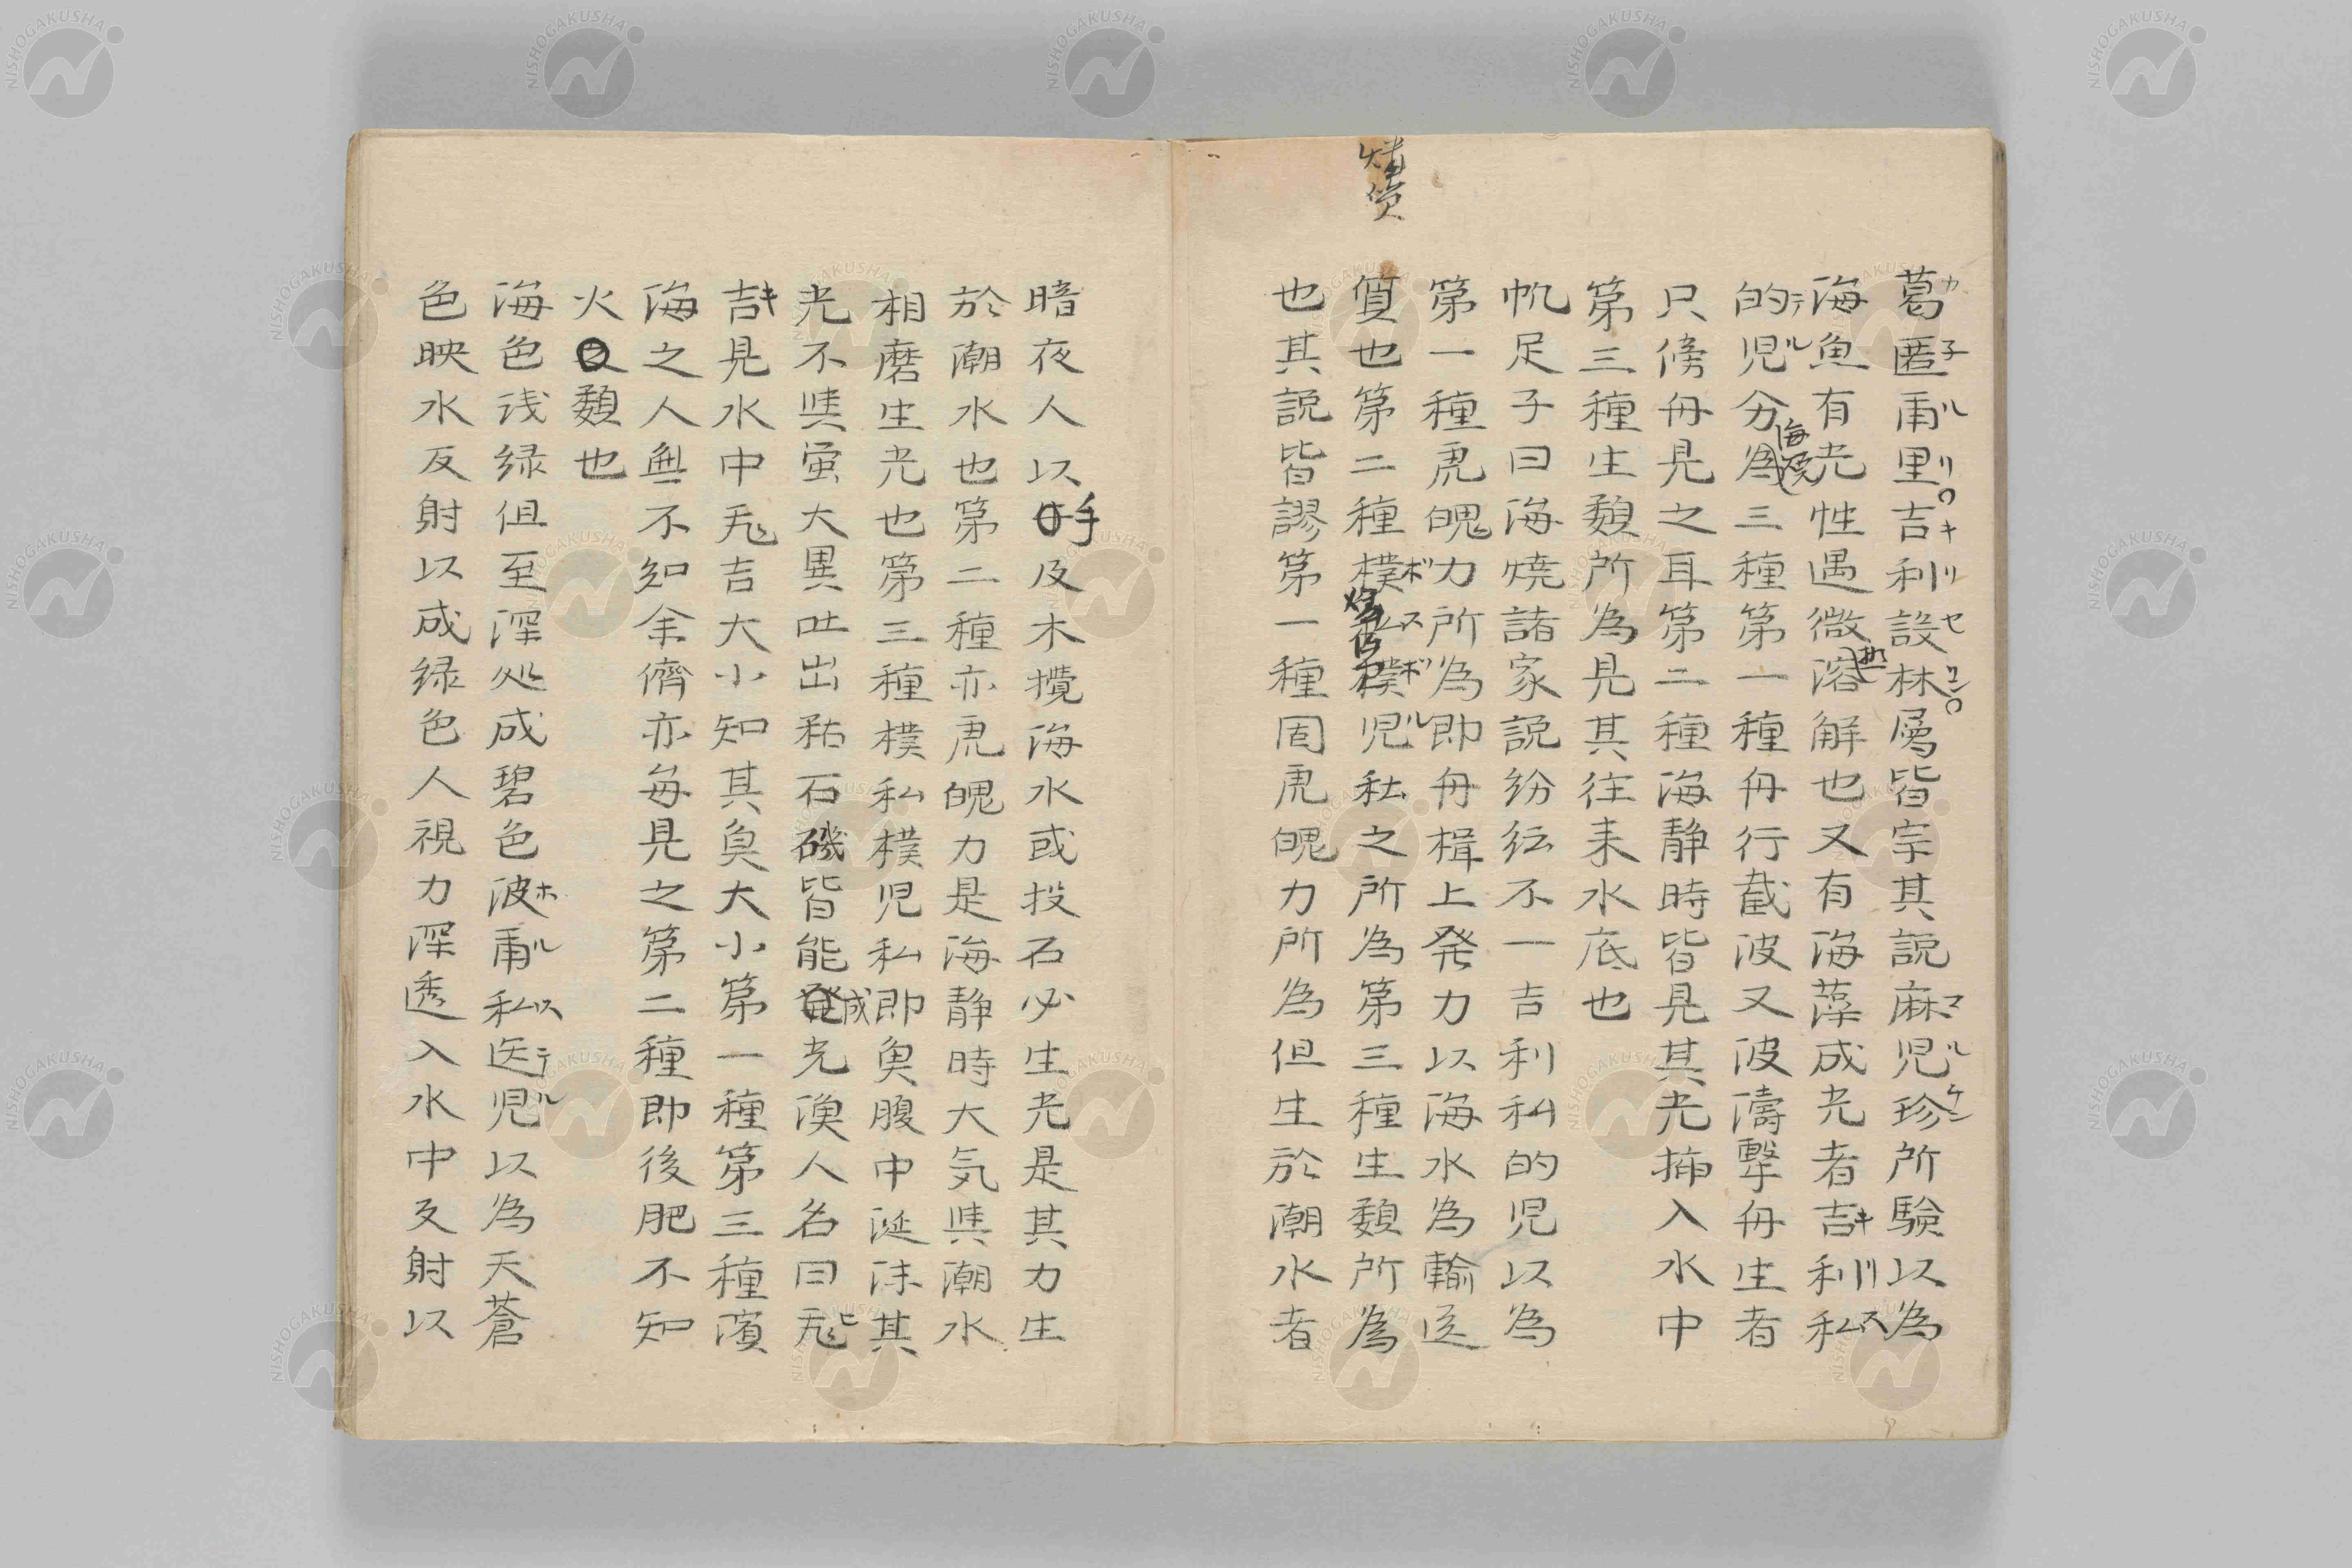 葛匿甭里吉利設林屬皆宗其説麻児珍所驗以為
海魚有光性遇微溶解也又有海藻成光者吉利私
的児分為三種第一種舟行截波又波濤擊舟生者
只傍舟見之耳第二種海静時皆見其光揷入水中
第三種生類所為見其往来水底也
帆足子曰海燒諸家説紛紜不一吉利私的児以為
第一種鬼力所為即舟楫上発力以海水為輸送
質也第二種樸私樸児私之所為第三種生類所為
也其説皆謬第一種固魄力所為但生於潮水者
暗夜人以手及木攪海水或投石必生光是其力生
於潮水也第二種亦魄力是海静時大気與潮水
相磨生光也第三種樸私樸児私即魚腹中涎沫其
光不與蛍大異吐出粘石磯皆能成光漁人名曰
吉見水中吉大小知其魚大小第一種第三種濱
海之人無不知余儕亦毎見之第二種即後肥不知
火類也
海色浅緑但至深処成碧色波甭私医児以為天蒼
色映水反射以成緑色人視力深透入水中反射以
NISHOGAKUSHA